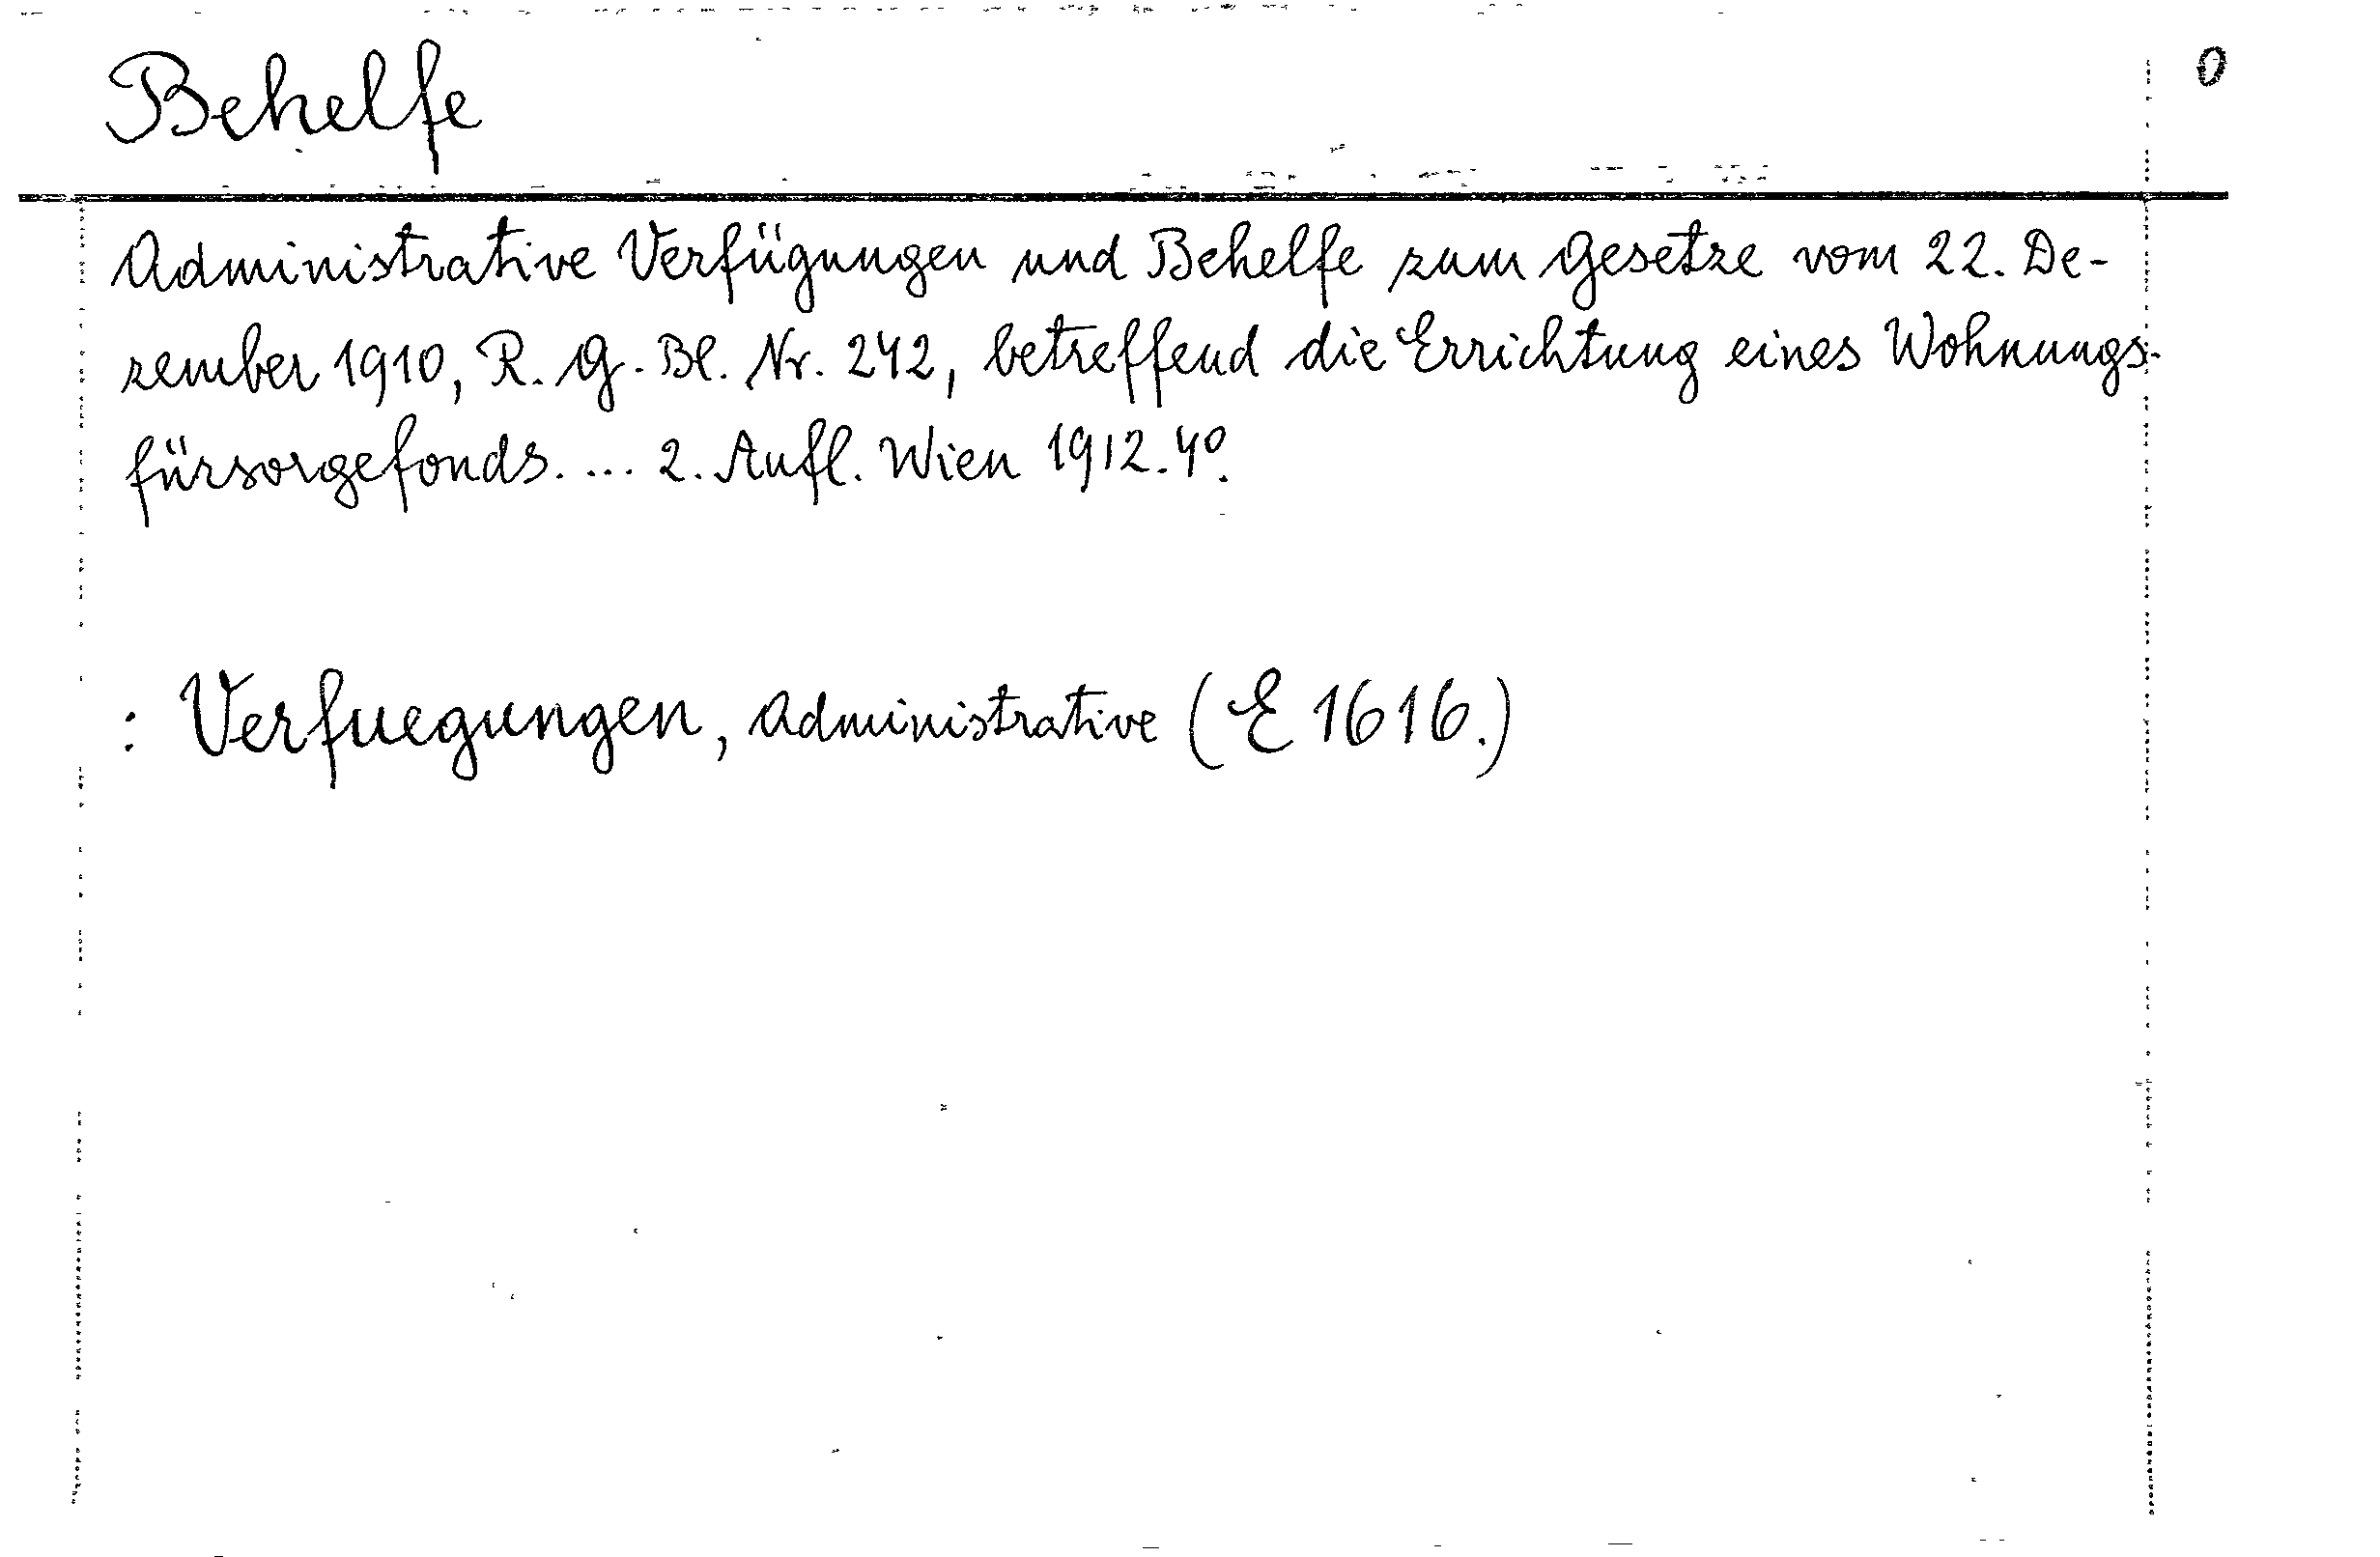 Behelfe 0
Administrative Verfügungen und Behelfe zum Gesetze vom 22. De-
zember 1910, R. G. Bl. Nr. 242, betreffend die Errichtung eines Wohnungs-
fürsorgefonds. ... 2. Aufl. Wien 1912. 4º.
: Verfuegungen, Administrative (E 1616.)